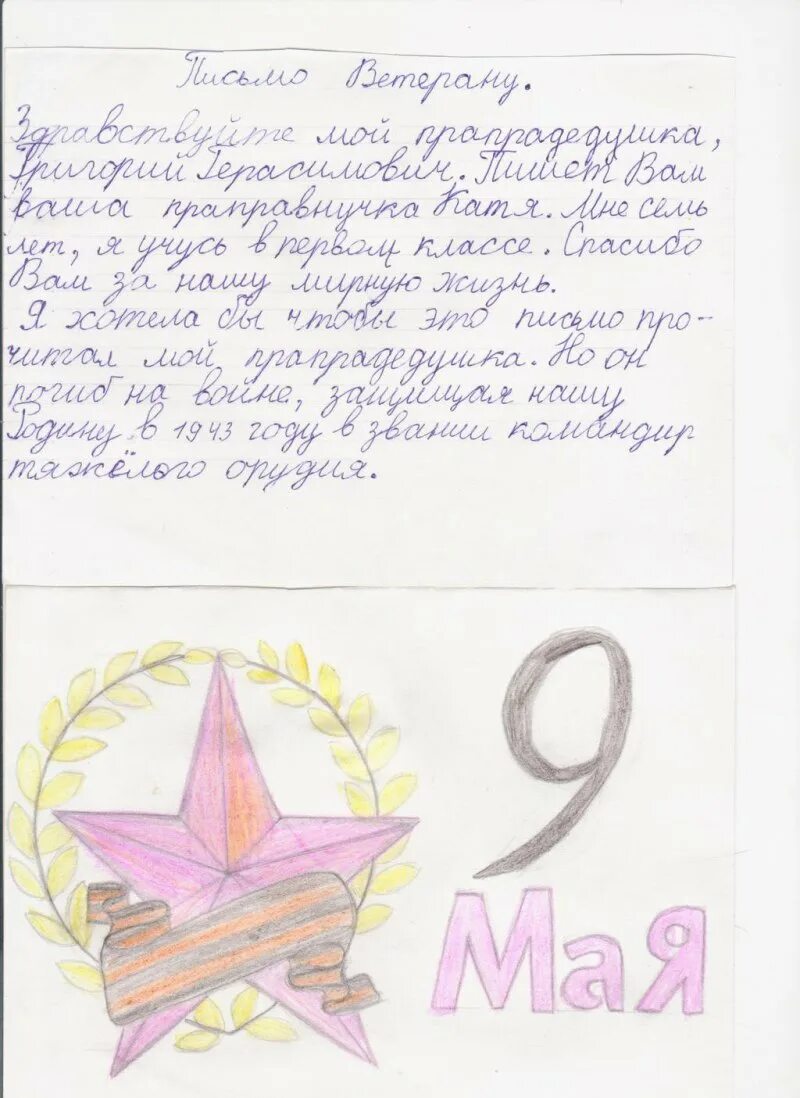 Письмо Ветерану.
Здравствуйте мой прапрадедушка,
Григорий Герасимович. Пишет Вам
ваша праправнучка Катя. Мне семь
лет, я учусь в первом классе. Спасибо
Вам за нашу мирную жизнь.
Я хотела бы чтобы это письмо про-
читал мой прапрадедушка. Но он
погиб на войне, защищая нашу
Родину в 1943 году в звании командир
тяжёлого орудия.
9
Мая